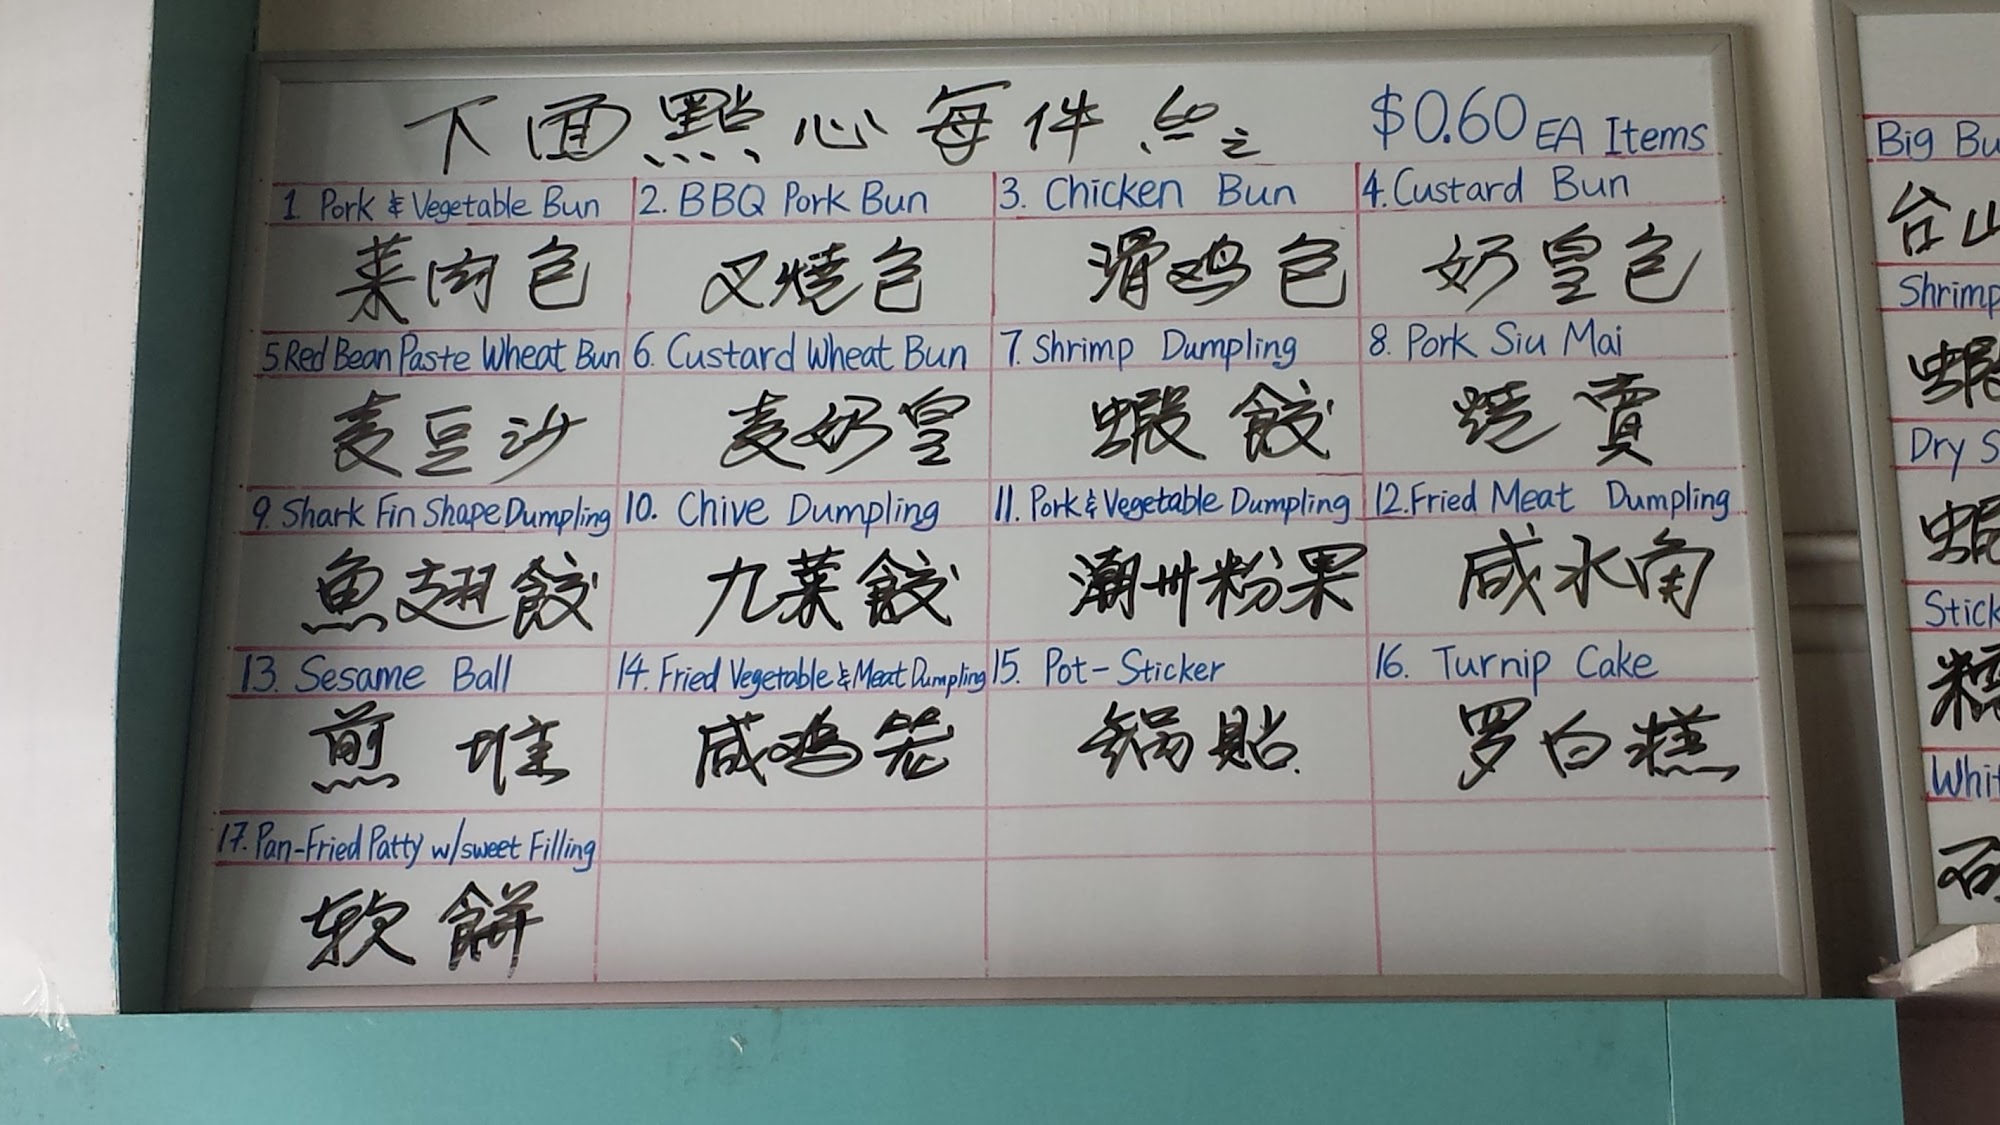 下面點心每件 60 $0.60 EA Items
1. Pork & Vegetable Bun
菜肉包
2. BBQ Pork Bun
叉燒包
3. Chicken Bun
滑鸡包
4. Custard Bun
奶皇包
5. Red Bean Paste Wheat Bun
麦豆沙
6. Custard Wheat Bun
麦奶皇
7. Shrimp Dumpling
蝦餃
8. Pork Siu Mai
烧賣
9. Shark Fin Shape Dumpling
魚翅餃
10. Chive Dumpling
九菜餃
11. Pork & Vegetable Dumpling
潮州粉果
12. Fried Meat Dumpling
咸水角
13. Sesame Ball
煎堆
14. Fried Vegetable & Meat Dumpling
咸鸡笼
15. Pot-Sticker
锅貼
16. Turnip Cake
罗白糕
17. Pan-Fried Patty w/sweet Filling
软餅
Big Bu
台山
Shrimp
蝦
Dry S
蝦
Stick
糯
Whit